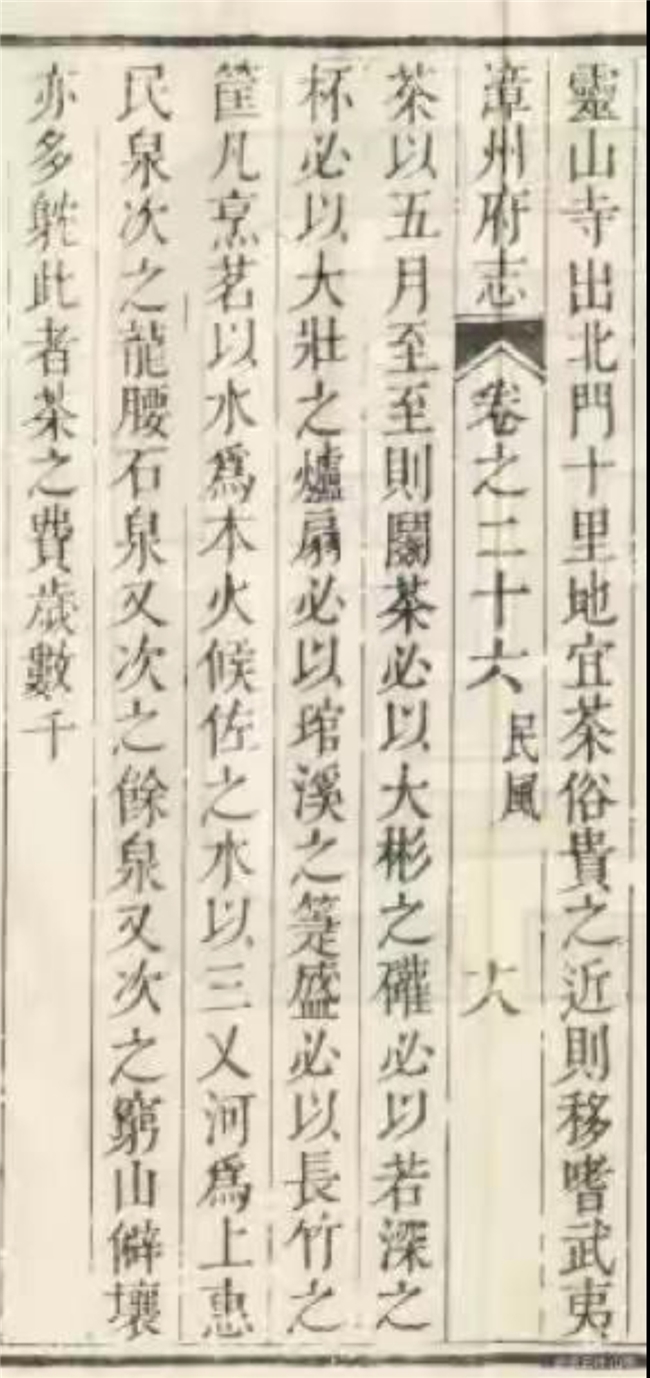 靈山寺出北門十里地宜茶俗貴之近則移嗜武夷
漳州府志 卷之二十六 民風 六
茶以五月至至則鬭茶必以大彬之礶必以若深之
杯必以大壯之爐扇必以琯溪之箑盛必以長竹之
筐凡烹茗以水爲本火候佐之水以三乂河爲上惠
民泉次之龍腰石泉又次之餘泉又次之窮山僻壤
亦多躭此者茶之費歲數千